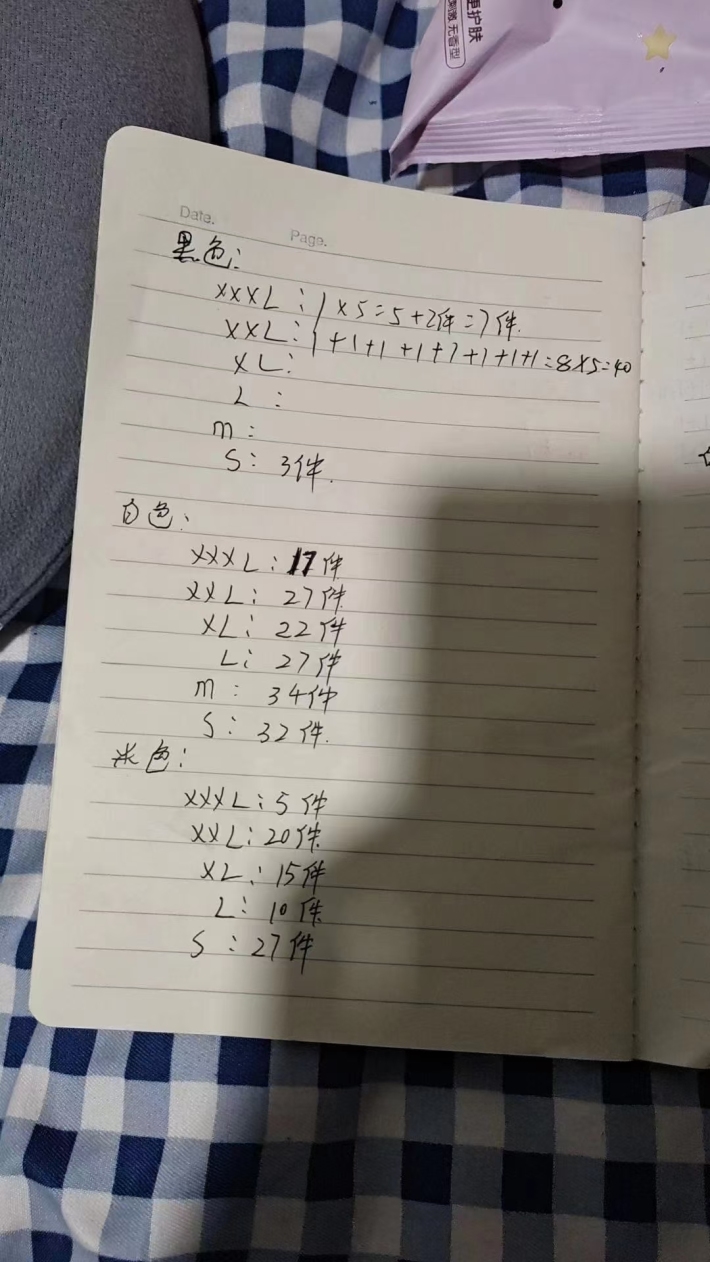 便护肤
刺激 无香型
Date.
Page.
黑色:
XXXL: 1×5=5+2件=7件.
XXL: 1+1+1+1+1+1+1+1=8×5=40
XL:
L:
m:
S: 3件.
白色:
XXXL: 17件
XXL: 27件
XL: 22件
L: 27件
m: 34件
S: 32件.
米色:
XXXL: 5件
XXL: 20件
XL: 15件
L: 10件
S: 27件